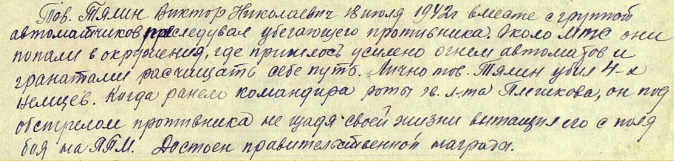 Тов. Тялин Виктор Николаевич 18 июля 1942г вместе с группой
автоматчиков преследуя убегающего противника. Около МТС они
попали в окружения, где пришлось усилено огнем автоматов и
гранатами расчищать себе путь. Лично тов. Тялин убил 4-х
немцев. Когда ранен командира роты гв. л-та Плешкова, он под
обстрелом противника не щадя своей жизни вытащил его с поля
боя на ППМ. Достоен правительственной награды.